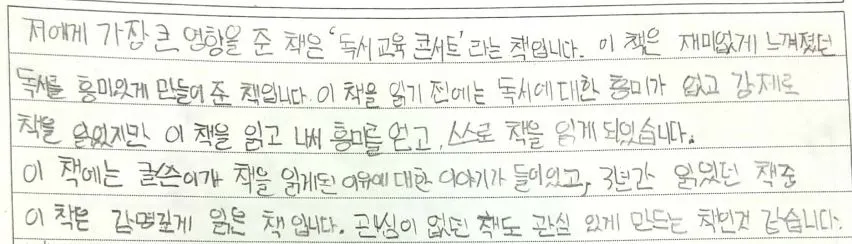 저에게 가장 큰 영향을 준 책은 '독서교육 콘서트'라는 책입니다. 이 책은 재미없게 느껴졌던
독서를 흥미있게 만들어 준 책입니다. 이 책을 읽기 전에는 독서에 대한 흥미가 없고 강제로
책을 읽었지만 이 책을 읽고 나서 흥미를 얻고, 스스로 책을 읽게 되었습니다.
이 책에는 글쓴이가 책을 읽게된 이유에 대한 이야기가 들어있고, 3년간 읽었던 책중
이 책은 감명깊게 읽은 책 입니다. 관심이 없던 책도 관심 있게 만드는 책인것 같습니다.